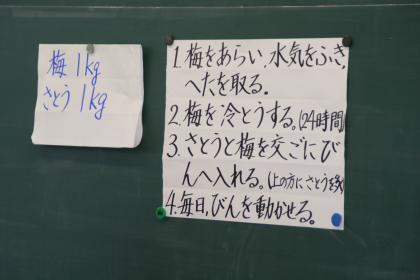 梅 1kg
さとう 1kg
1. 梅をあらい、水気をふき、
へたを取る。
2. 梅を冷とうする。(24時間)
3. さとうと梅を交ごにび
んへ入れる。(上の方にさとうを多)
4. 毎日、びんを動かせる。